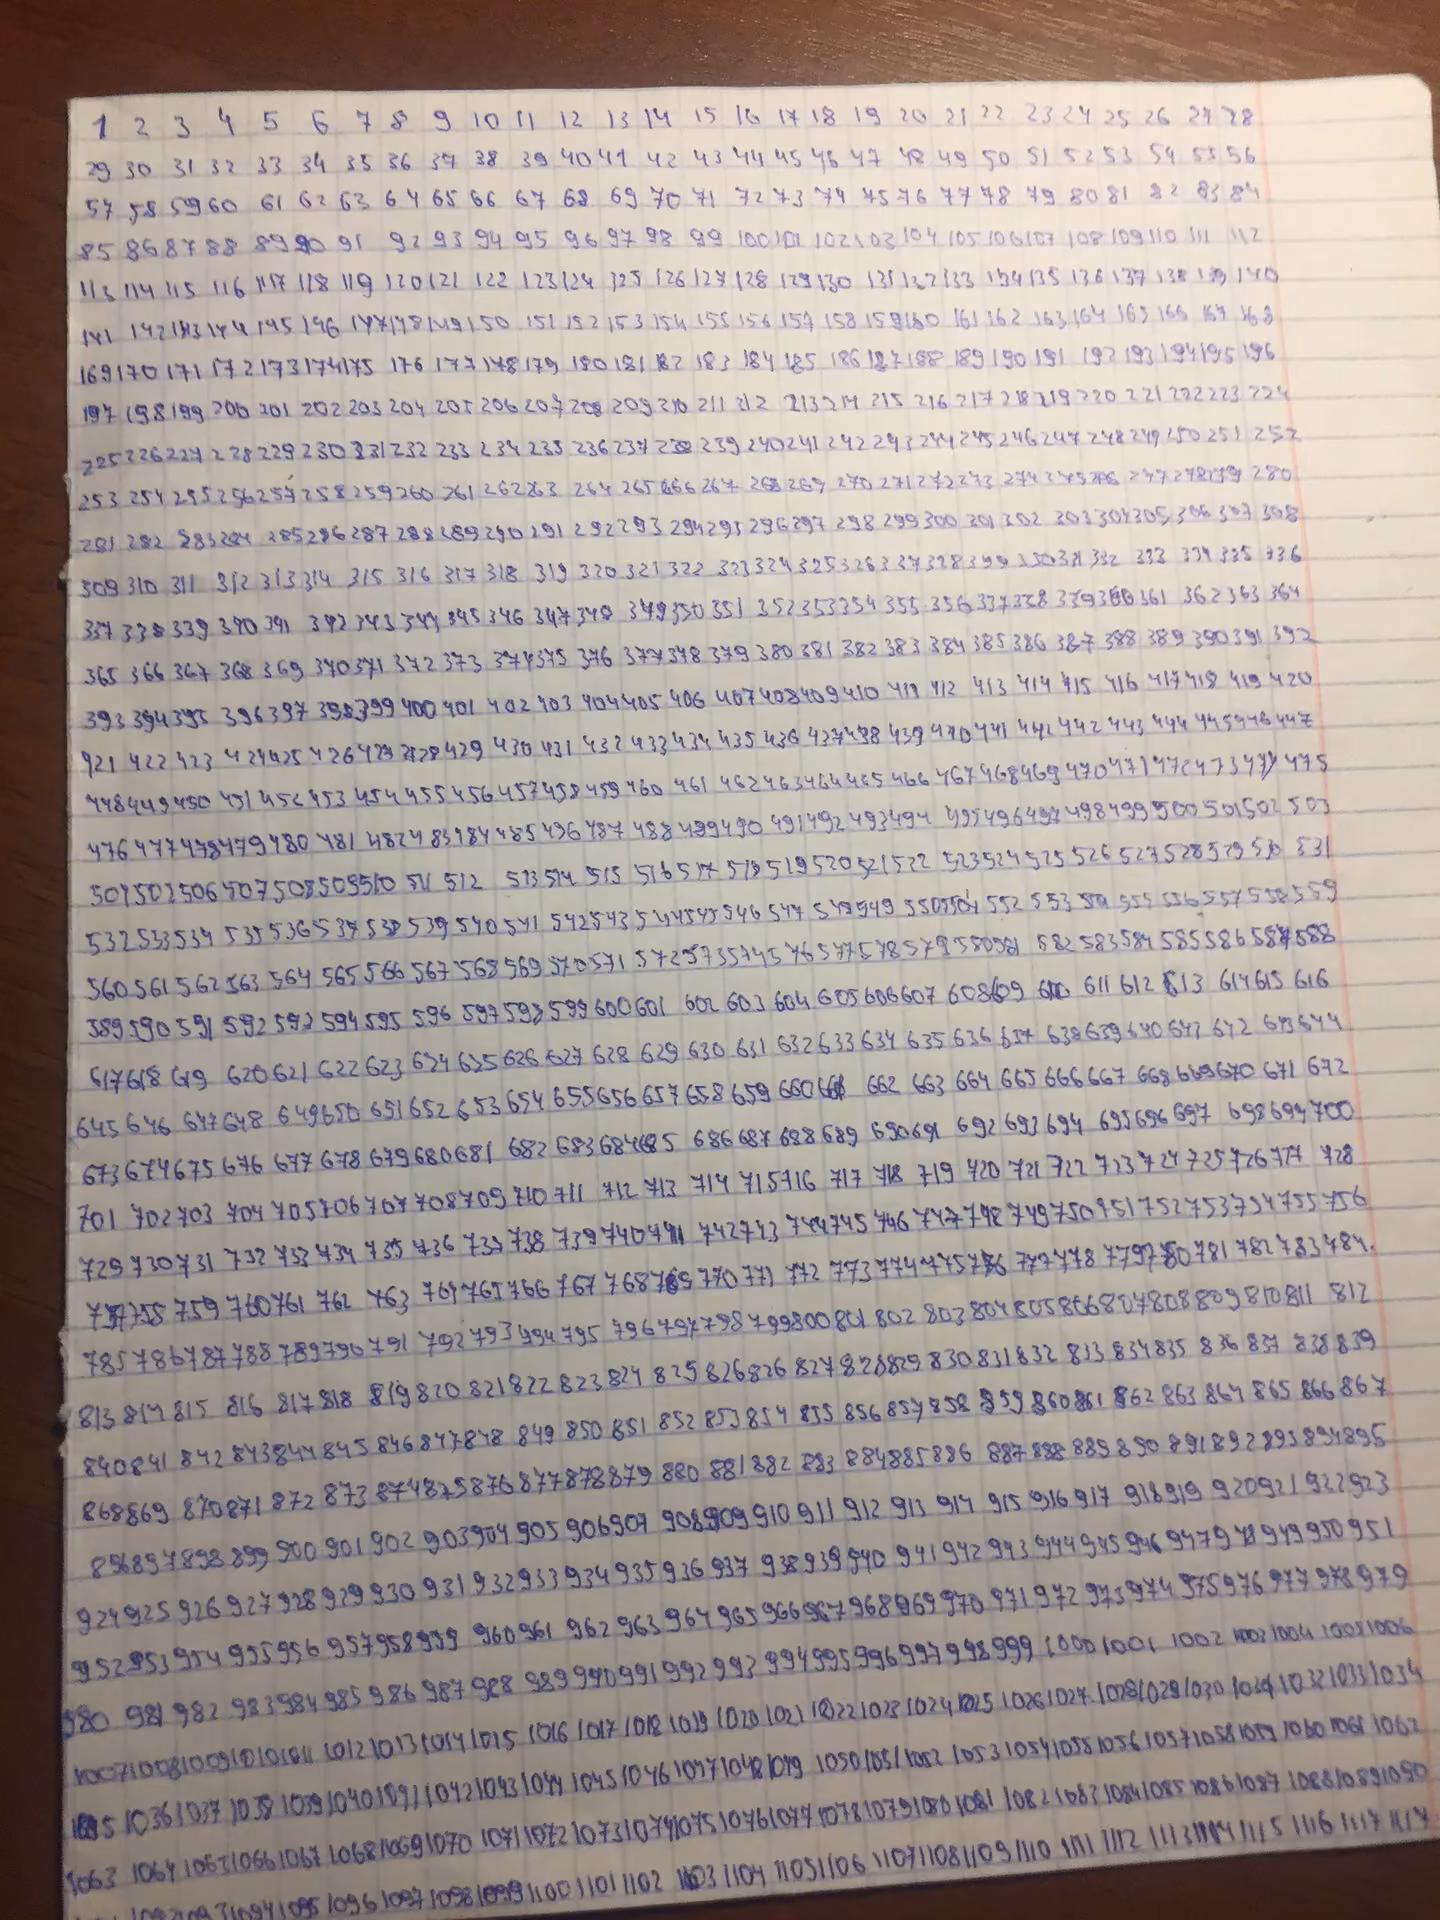 1 2 3 4 5 6 7 8 9 10 11 12 13 14 15 16 17 18 19 20 21 22 23 24 25 26 27 28
29 30 31 32 33 34 35 36 37 38 39 40 41 42 43 44 45 46 47 48 49 50 51 52 53 54 55 56
57 58 59 60 61 62 63 64 65 66 67 68 69 70 71 72 73 74 75 76 77 78 79 80 81 82 83 84
85 86 87 88 89 90 91 92 93 94 95 96 97 98 99 100 101 102 103 104 105 106 107 108 109 110 111 112
113 114 115 116 117 118 119 120 121 122 123 124 125 126 127 128 129 130 131 132 133 134 135 136 137 138 139 140
141 142 143 144 145 146 147 148 149 150 151 152 153 154 155 156 157 158 159 160 161 162 163 164 165 166 167 168
169 170 171 172 173 174 175 176 177 178 179 180 181 182 183 184 185 186 187 188 189 190 191 192 193 194 195 196
197 198 199 200 201 202 203 204 205 206 207 208 209 210 211 212 213 214 215 216 217 218 219 220 221 222 223 224
225 226 227 228 229 230 231 232 233 234 235 236 237 238 239 240 241 242 243 244 245 246 247 248 249 250 251 252
253 254 255 256 257 258 259 260 261 262 263 264 265 266 267 268 269 270 271 272 273 274 275 276 277 278 279 280
281 282 283 284 285 286 287 288 289 290 291 292 293 294 295 296 297 298 299 300 301 302 303 304 305 306 307 308
309 310 311 312 313 314 315 316 317 318 319 320 321 322 323 324 325 326 327 328 329 330 331 332 333 334 335 336
337 338 339 340 341 342 343 344 345 346 347 348 349 350 351 352 353 354 355 356 357 358 359 360 361 362 363 364
365 366 367 368 369 370 371 372 373 374 375 376 377 378 379 380 381 382 383 384 385 386 387 388 389 390 391 392
393 394 395 396 397 398 399 400 401 402 403 404 405 406 407 408 409 410 411 412 413 414 415 416 417 418 419 420
421 422 423 424 425 426 427 428 429 430 431 432 433 434 435 436 437 438 439 440 441 442 442 443 444 445 446 447
448 449 450 451 452 453 454 455 456 457 458 459 460 461 462 463 464 465 466 467 468 469 470 471 472 473 474 475
476 477 478 479 480 481 482 483 484 485 486 487 488 489 490 491 492 493 494 495 496 497 498 499 500 501 502 503
504 505 506 507 508 509 510 511 512 513 514 515 516 517 518 519 520 521 522 523 524 525 526 527 528 529 530 531
532 533 534 535 536 537 538 539 540 541 542 543 544 545 546 547 548 549 550 551 552 553 554 555 556 557 558 559
560 561 562 563 564 565 566 567 568 569 570 571 572 573 574 576 577 578 579 580 581 582 583 584 585 586 587 588
589 590 591 592 593 594 595 596 597 598 599 600 601 602 603 604 605 606 607 608 609 610 611 612 613 614 615 616
617 618 619 620 621 622 623 624 625 626 627 628 629 630 631 632 633 634 635 636 637 638 639 640 641 642 643 644
645 646 647 648 649 650 651 652 653 654 655 656 657 658 659 660 661 662 663 664 665 666 667 668 669 670 671 672
673 674 675 676 677 678 679 680 681 682 683 684 685 686 687 688 689 690 691 692 693 694 695 696 697 698 699 700
701 702 703 704 705 706 707 708 709 710 711 712 713 714 715 716 717 718 719 720 721 722 723 724 725 726 727 728
729 730 731 732 733 734 735 736 737 738 739 740 741 742 743 744 745 746 747 748 749 750 751 752 753 754 755 756
757 758 759 760 761 762 763 764 765 766 767 768 769 770 771 772 773 774 775 776 777 778 779 780 781 782 783 784.
785 786 787 788 789 790 791 792 793 794 795 796 797 798 799 800 801 802 803 804 805 806 807 808 809 810 811 812
813 814 815 816 817 818 819 820 821 822 823 824 825 826 826 827 828 829 830 831 832 833 834 835 836 837 838 839
840 841 842 843 844 845 846 847 848 849 850 851 852 853 854 855 856 857 858 859 860 861 862 863 864 865 866 867
868 869 870 871 872 873 874 875 876 877 878 879 880 881 882 883 884 885 886 887 888 889 890 891 892 893 894 895
896 897 898 899 900 901 902 903 904 905 906 907 908 909 910 911 912 913 914 915 916 917 918 919 920 921 922 923
924 925 926 927 928 929 930 931 932 933 934 935 936 937 938 939 940 941 942 943 944 945 946 947 948 949 950 951
952 953 954 955 956 957 958 959 960 961 962 963 964 965 966 967 968 969 970 971 972 973 974 975 976 977 978 979
980 981 982 983 984 985 986 987 988 989 990 991 992 993 994 995 996 997 998 999 1000 1001 1002 1003 1004 1005 1006
1007 1008 1009 1010 1011 1012 1013 1014 1015 1016 1017 1018 1019 1020 1021 1022 1023 1024 1025 1026 1027 1028 1029 1030 1031 1032 1033 1034
1035 1036 1037 1038 1039 1040 1041 1042 1043 1044 1045 1046 1047 1048 1049 1050 1051 1052 1053 1054 1055 1056 1057 1058 1059 1060 1061 1062
1063 1064 1065 1066 1067 1068 1069 1070 1071 1072 1073 1074 1075 1076 1077 1078 1079 1080 1081 1082 1083 1084 1085 1086 1087 1088 1089 1090
1092 1093 1094 1095 1096 1097 1098 1099 1100 1101 1102 1103 1104 1105 1106 1107 1108 1109 1110 1111 1112 1113 1114 1115 1116 1117